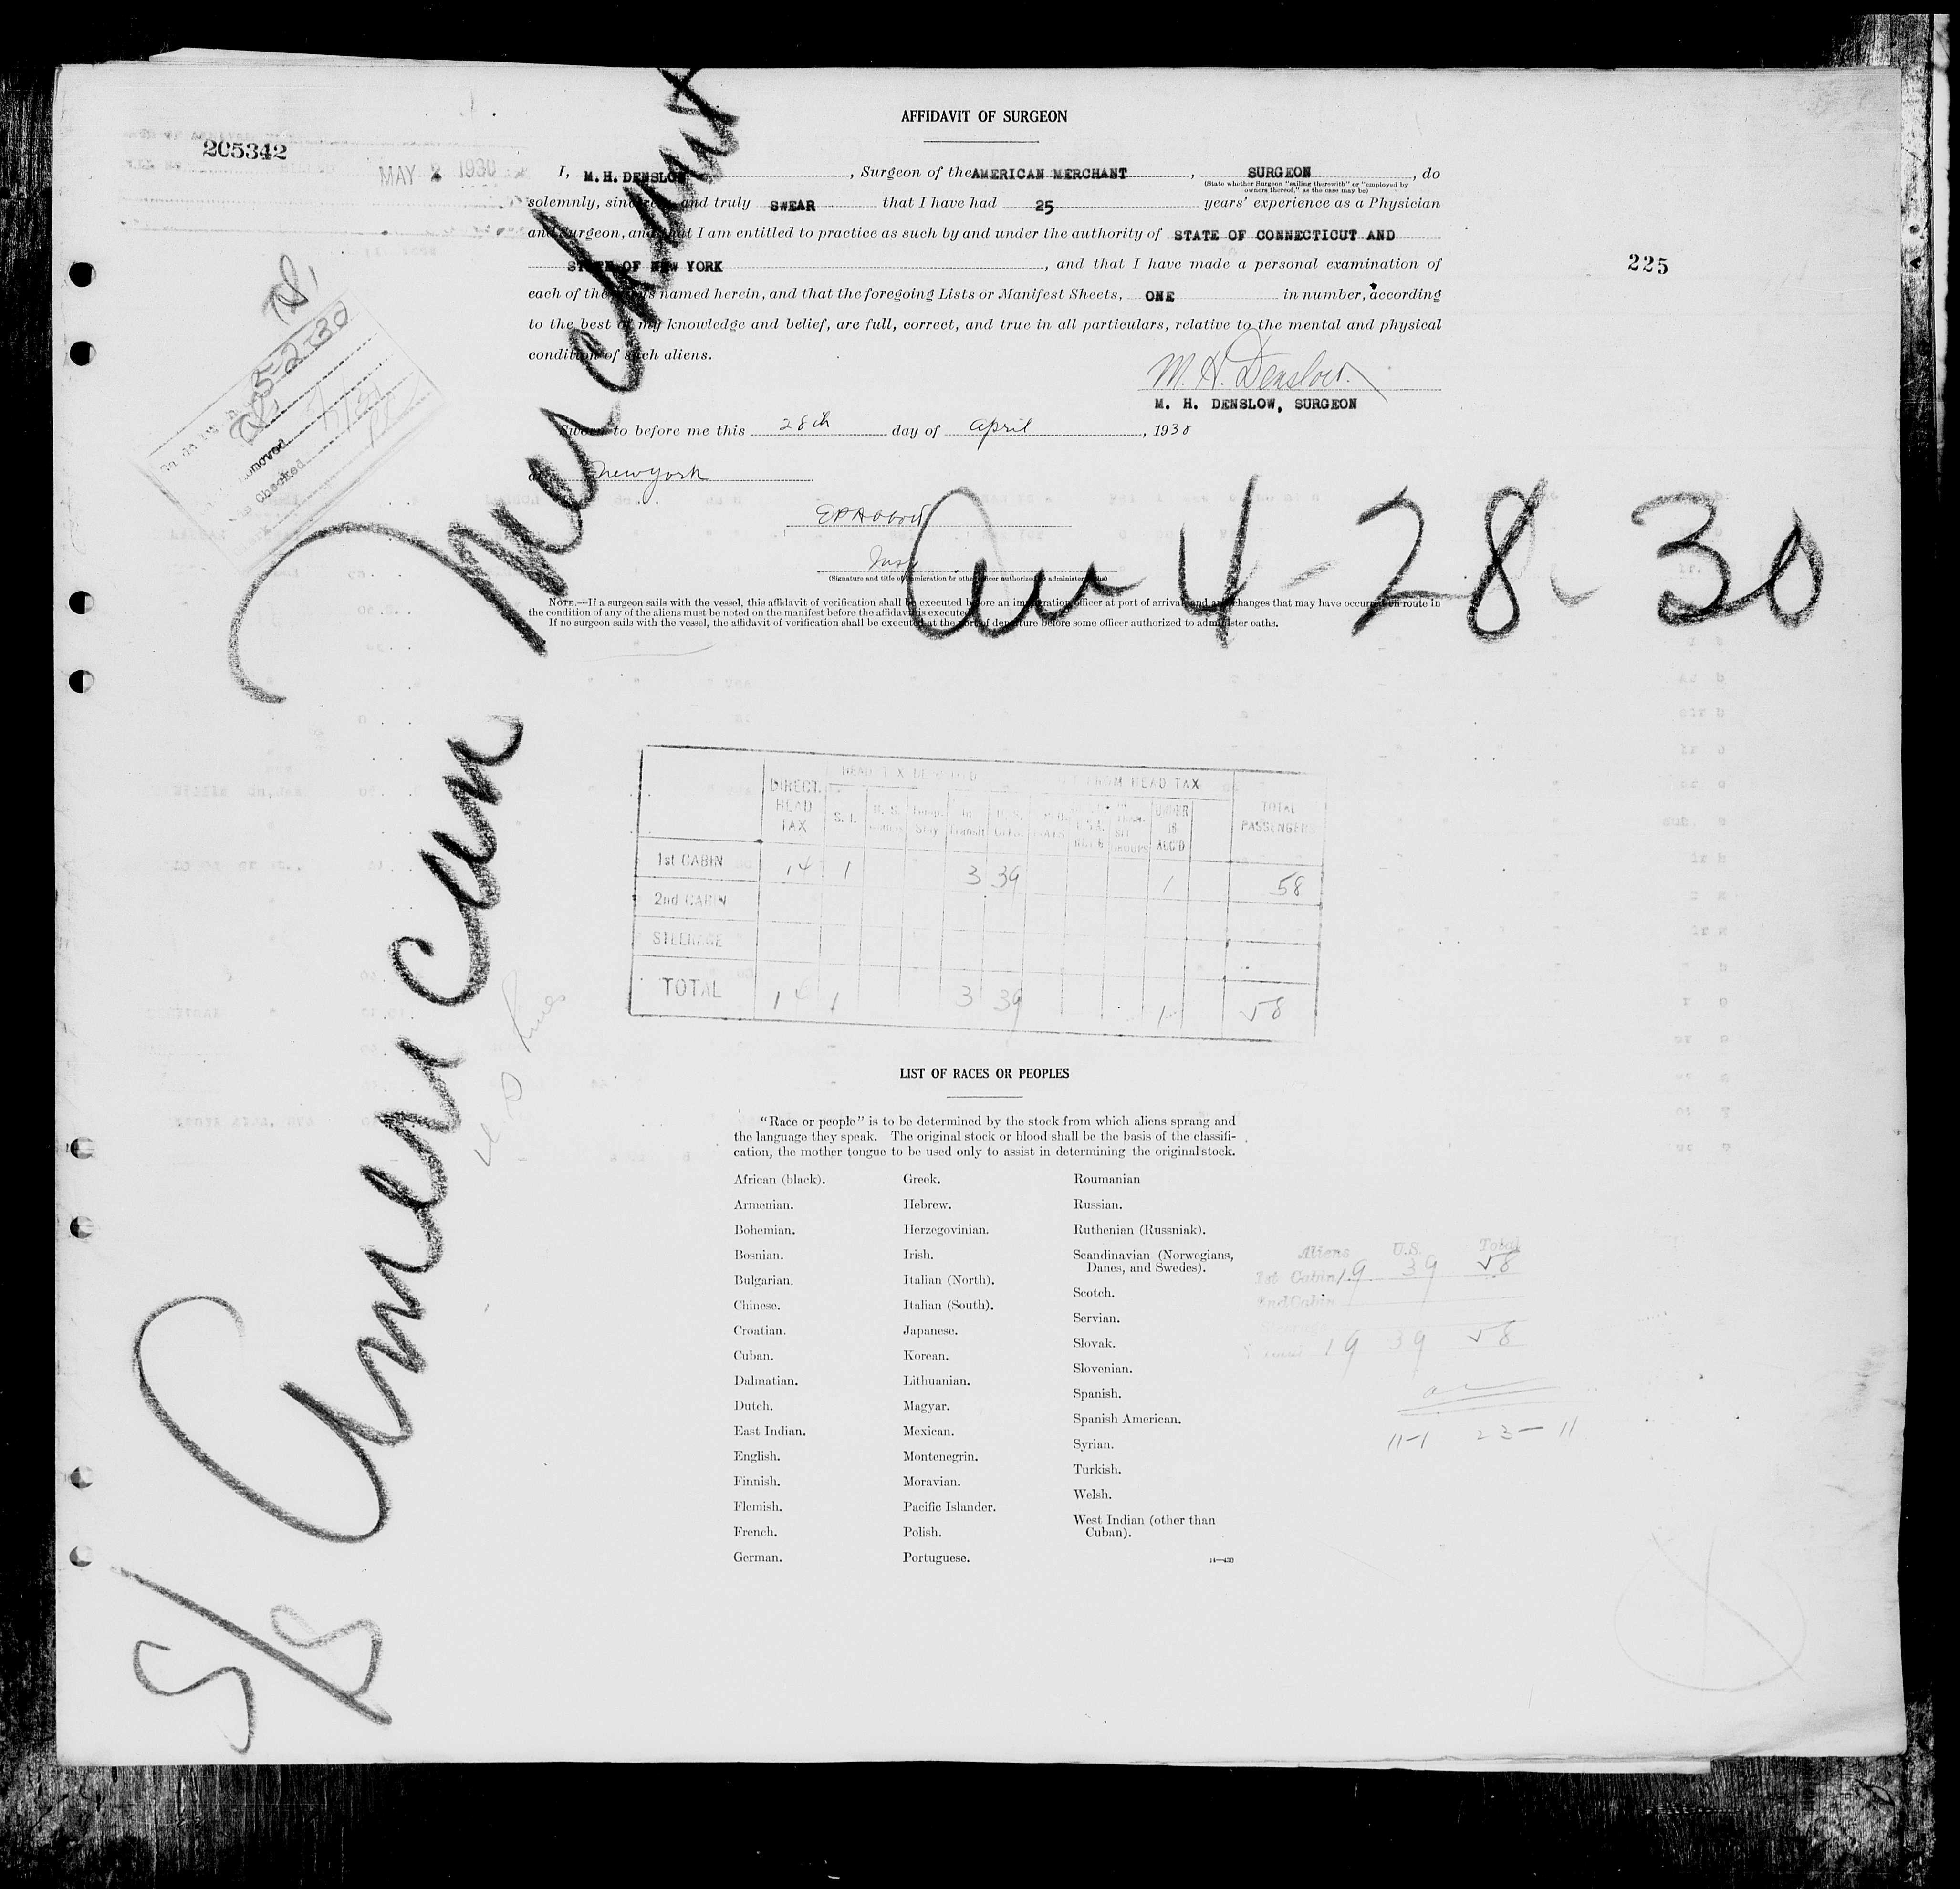 AFFIDAVIT OF SURGEON
205342
MAY 2 1930
I, M. H. DENSLOW, Surgeon of the AMERICAN MERCHANT, SURGEON, do
(State whether Surgeon "sailing therewith" or "employed by
owners thereof," as the case may be)
solemnly, sincerely, and truly SWEAR that I have had 25 years' experience as a Physician
and Surgeon, and that I am entitled to practice as such by and under the authority of STATE OF CONNECTICUT AND
STATE OF NEW YORK, and that I have made a personal examination of
225
each of the aliens named herein, and that the foregoing Lists or Manifest Sheets, ONE in number, according
to the best of my knowledge and belief, are full, correct, and true in all particulars, relative to the mental and physical
condition of such aliens.
M. H. Denslow.
M. H. DENSLOW, SURGEON
Sworn to before me this 28th day of April, 1930
at New York
Insp
(Signature and title of immigration or other officer authorized to administer oaths)
NOTE.—If a surgeon sails with the vessel, this affidavit of verification shall be executed before an immigration officer at port of arrival, and any changes that may have occurred en route in
the condition of any of the aliens must be noted on the manifest before the affidavit is executed.
If no surgeon sails with the vessel, the affidavit of verification shall be executed at the port of departure before some officer authorized to administer oaths.
5-2-30
Checked
S/S American Merchant
Arr 4-28-30
FROM HEAD TAX
DIRECT HEAD TAX
S. I.
In Transit
U. S. CITS.
UNDER 16 ACC'D
TOTAL PASSENGERS
1st CABIN 14 1 3 39 1 58
2nd CABIN
STEERAGE
TOTAL 14 1 3 39 1 58
LIST OF RACES OR PEOPLES
"Race or people" is to be determined by the stock from which aliens sprang and
the language they speak. The original stock or blood shall be the basis of the classifi-
cation, the mother tongue to be used only to assist in determining the original stock.
African (black).
Armenian.
Bohemian.
Bosnian.
Bulgarian.
Chinese.
Croatian.
Cuban.
Dalmatian.
Dutch.
East Indian.
English.
Finnish.
Flemish.
French.
German.
Greek.
Hebrew.
Herzegovinian.
Irish.
Italian (North).
Italian (South).
Japanese.
Korean.
Lithuanian.
Magyar.
Mexican.
Montenegrin.
Moravian.
Pacific Islander.
Polish.
Portuguese.
Roumanian
Russian.
Ruthenian (Russniak).
Scandinavian (Norwegians,
Danes, and Swedes).
Scotch.
Servian.
Slovak.
Slovenian.
Spanish.
Spanish American.
Syrian.
Turkish.
Welsh.
West Indian (other than
Cuban).
14—430
Aliens U.S. Total
1st Cabin 19 39 58
2nd Cabin
19 39 58
11-1 23-11